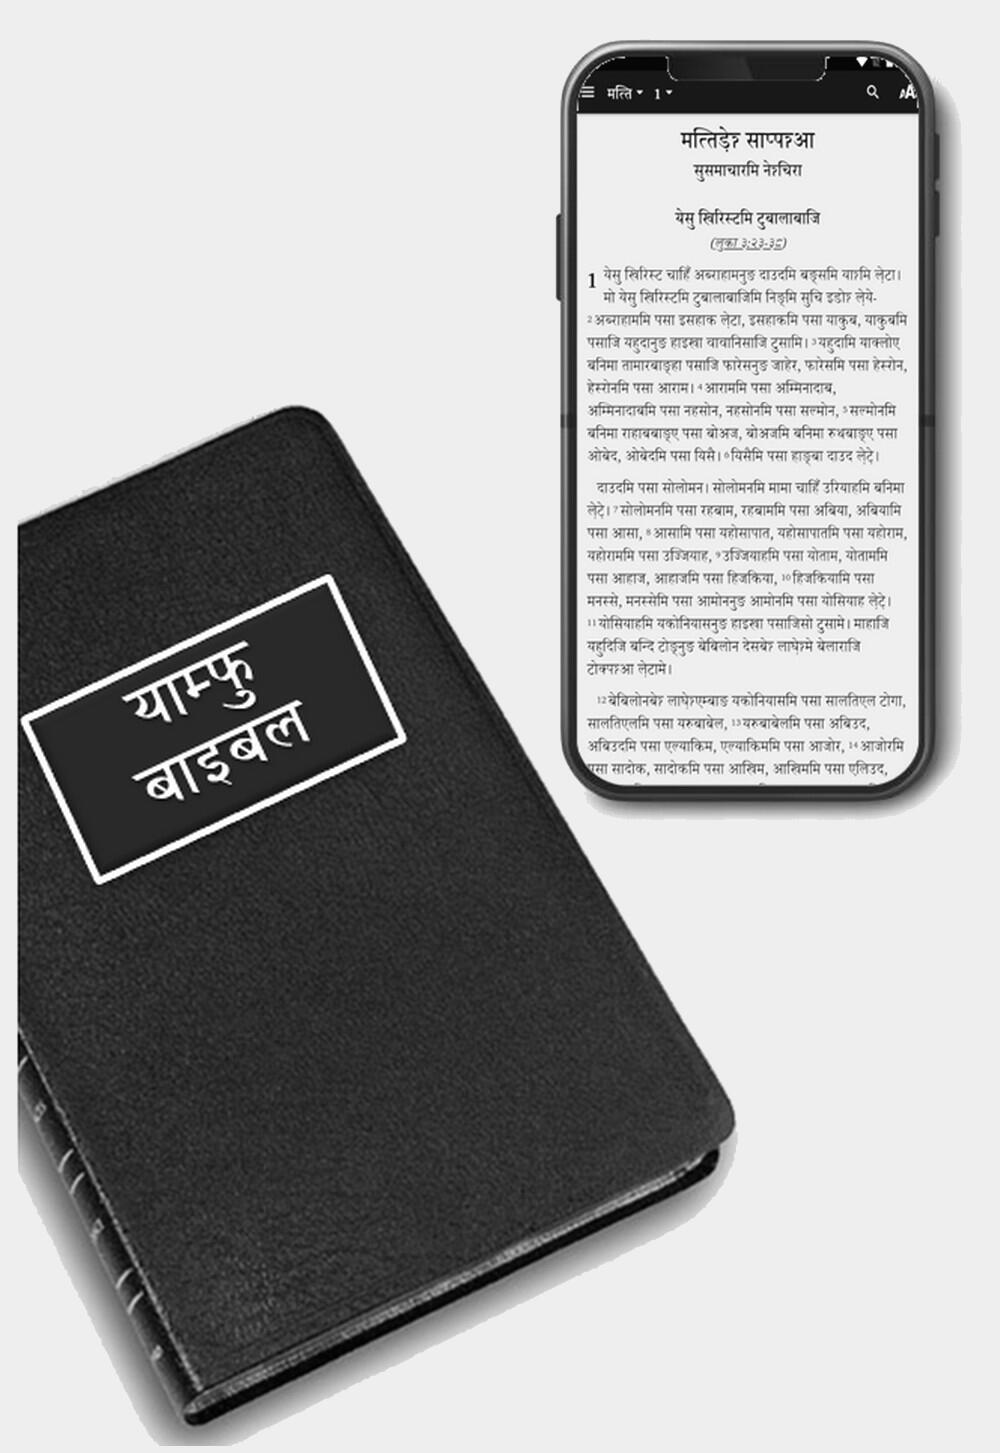 याम्फु
बाइबल
मत्ति 1
मत्तिड़ेॽ साप्पॽआ
सुसमाचारमि नेॽचिरा
येसु ख्रिस्टमि टुबालाबाजि
(लूका ३:२३-३८)
1 येसु ख्रिस्ट चाहिँ अब्राहामनुङ दाउदमि बङ्समि याॽमि ले़टा।
मो येसु ख्रिस्टमि टुबालाबाजिमि निङ्मि सुचि इडोॽ ले़ये-
२ अब्राहाममि पसा इसहाक ले़टा, इसहाकमि पसा याकुब, याकुबमि
पसाजि यहुदानुङ हाइख्रा वावानिसाजि टुसामि। ३ यहुदामि याक्लोए
बनिमा तामारबाङ्हा पसाजि फारेसनुङ जाहेर, फारेसमि पसा हेस्रोन,
हेस्रोनमि पसा आराम। ४ आराममि पसा अम्मिनादाब,
अम्मिनादाबमि पसा नहसोन, नहसोनमि पसा सल्मोन, ५ सल्मोनमि
बनिमा राहाबबाङ्ए पसा बोअज, बोअजमि बनिमा रुथबाङ्ए पसा
ओबेद, ओबेदमि पसा यिसै। ६ यिसैमि पसा हाङ्बा दाउद ले़टे़।
दाउदमि पसा सोलोमन। सोलोमनमि मामा चाहिँ उरियाहमि बनिमा
ले़टे़। ७ सोलोमनमि पसा रहबाम, रहबाममि पसा अबिया, अबियामि
पसा आसा, ८ आसामि पसा यहोसापात, यहोसापातमि पसा यहोराम,
यहोराममि पसा उज्जियाह, ९ उज्जियाहमि पसा योताम, योताममि
पसा आहाज, आहाजमि पसा हिजकिया, १० हिजकियामि पसा
मनस्से, मनस्सेमि पसा आमोननुङ आमोनमि पसा योसियाह ले़टे़।
११ योसियाहमि यकोनियासनुङ हाइख्रा पसाजिसो टुसामे। माहाजि
यहुदिजि बन्दि टोङ्नुङ बेबिलोन देसबेॽ लाघे़ॽमे बेलाराजि
टोक्पॽआ ले़टामे।
१२ बेबिलोनबेॽ लाघे़ॽएम्बाङ यकोनियासमि पसा सालतिएल टोगा,
सालतिएलमि पसा यरुबाबेल, १३ यरुबाबेलमि पसा अबिउद,
अबिउदमि पसा एल्याकिम, एल्याकिममि पसा आजोर, १४ आजोरमि
पसा सादोक, सादोकमि पसा आखिम, आखिममि पसा एलिउद,